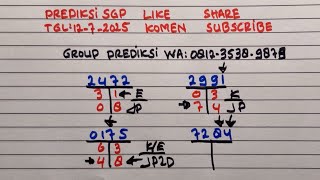 PREDIKSI SGP LIKE SHARE
TGL:12-7-2025 KOMEN SUBSCRIBE
GROUP PREDIKSI WA: 0812-3538-9878
2472 2991
3 1 E 0 3 K
0 8 JP 7 4 JP
0175 7284
6 3 K/E
4 8 JP2D